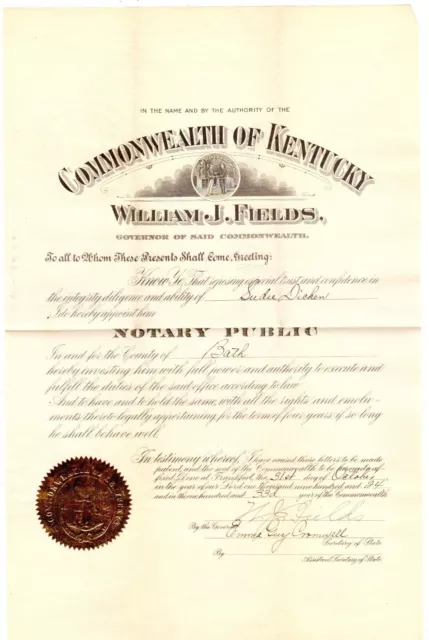 IN THE NAME AND BY THE AUTHORITY OF THE
COMMONWEALTH OF KENTUCKY
WILLIAM J. FIELDS,
GOVERNOR OF SAID COMMONWEALTH.
To all to Whom These Presents Shall Come, Greeting:
Know Ye, That reposing especial trust and confidence in
the integrity diligence and ability of Sudie Dicken
I do hereby appoint him
NOTARY PUBLIC
In and for the County of Bath
hereby investing him with full power and authority to execute and
fulfill the duties of the said office according to law.
And to have and to hold the same, with all the rights and emolu-
ments thereto legally appertaining, for the term of four years if so long
he shall behave well.
In testimony whereof, I have caused these letters to be made
patent, and the seal of the Commonwealth to be hereunto af-
fixed. Done at Frankfort, the 31st day of October
in the year of our Lord one thousand nine hundred and 24
and in the one hundred and 33d year of the Commonwealth
W. J. Fields
By the Governor
Emma Guy Cromwell
Secretary of State.
By
Assistant Secretary of State.